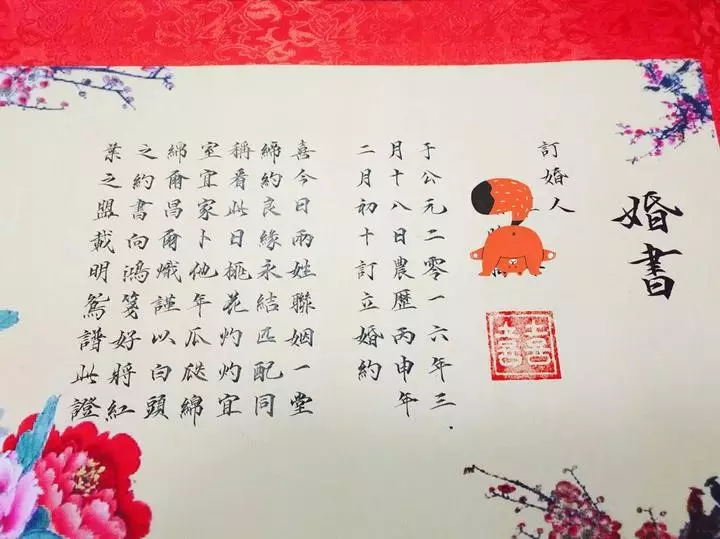 婚書
訂婚人
囍
于公元二零一六年三.
月十八日農歷丙申年
二月初十訂立婚約
喜今日兩姓聯姻一堂
締約良緣永結匹配同
稱看此日桃花灼灼宜
室宜家卜他年瓜瓞綿
綿爾昌爾熾謹以白頭
之約書向鴻箋好將紅
葉之盟載明鴛譜此證